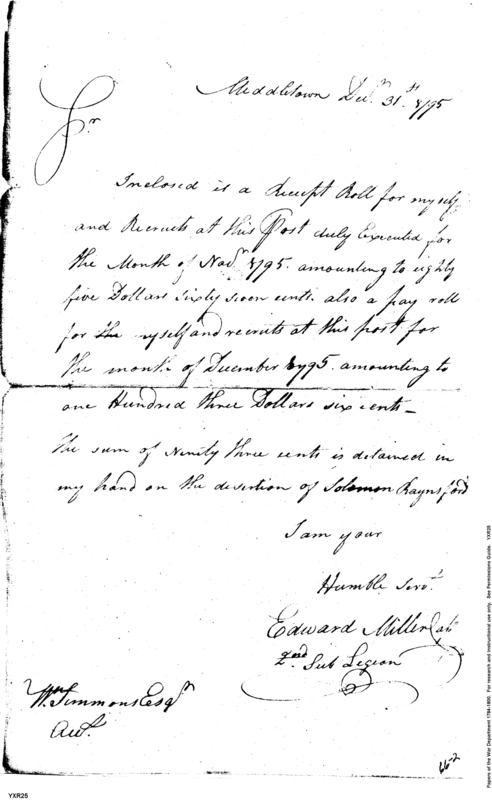 Middletown Decr. 31st. 1795
Sr
Inclosed is a Receipt Roll for myself
and Recruits at this Post duly Executed for
the Month of Novr 1795. amounting to eighty
five Dollars Sixty seven cents. also a pay roll
for the myself and recruits at this post for
the month of December 1795. amounting to
one Hundred three Dollars six cents–
The sum of Ninity three cents is detained in
my hand on the desertion of Solomon Raynsford
I am your
Humble Servt.
Edward Miller Capt
2nd Sub Legion
Wm Simmons Esqr
Acct.
662
YXR25
Papers of the War Department 1784-1800. For research and instructional use only. See Permissions Guide. YXR25